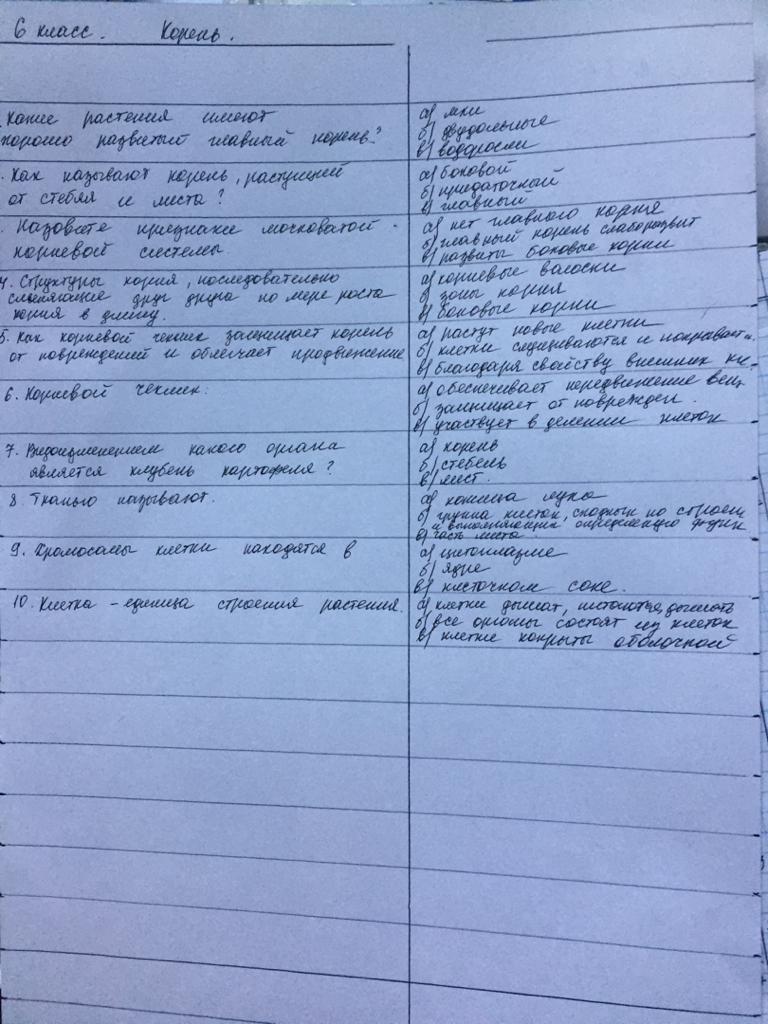 6 класс. Корень.
Какие растения имеют
хорошо развитый главный корень?
а) мхи
б) двудольные
в) водоросли
. Как называют корень, растущий
от стебля и листа?
а) боковой
б) придаточный
в) главный
. Назовите признаки мочковатой
корневой системы
а) нет главного корня
б) главный корень слаборазвит
в) развиты боковые корни
4. Структуры корня, последовательно
сменяющие друг друга по мере роста
корня в длину.
а) корневые волоски
б) зоны корня
в) боковые корни
5. Как корневой чехлик защищает корень
от повреждений и облегчает продвижение
а) растут новые клетки
б) клетки слущиваются и покрывают
в) благодаря свойству внешних кл-
6. Корневой чехлик:
а) обеспечивает передвижение вещ.
б) защищает от поврежден.
в) участвует в делении клеток
7. Видоизменением какого органа
является клубень картофеля?
а) корень
б) стебель
в) лист.
8. Тканью называют.
а) кожица лука
б) группа клеток, сходных по строен
и выполняющих определенную функц
в) часть листа.
9. Хромосомы клетки находятся в
а) цитоплазме
б) ядре
в) клеточном соке.
10. Клетка - единица строения растения.
а) клетки дышат, питаются,
б) все органы состоят из клеток
в) клетки покрыты оболочкой